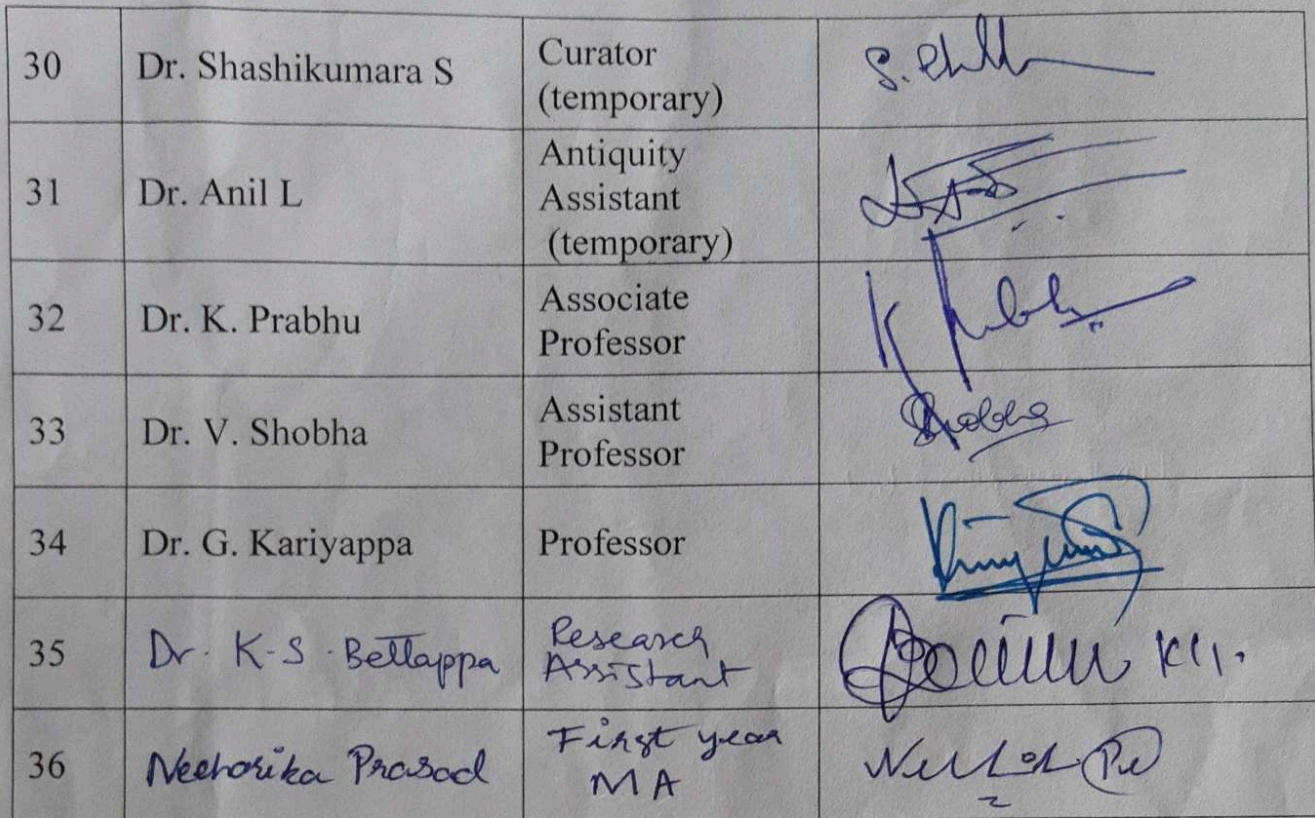 30 Dr. Shashikumara S Curator
(temporary)
31 Dr. Anil L Antiquity
Assistant
(temporary)
32 Dr. K. Prabhu Associate
Professor
33 Dr. V. Shobha Assistant
Professor
Shobha
34 Dr. G. Kariyappa Professor
35 Dr. K-S. Bettappa Research
Assistant
36 Neeharika Prasad First year
MA